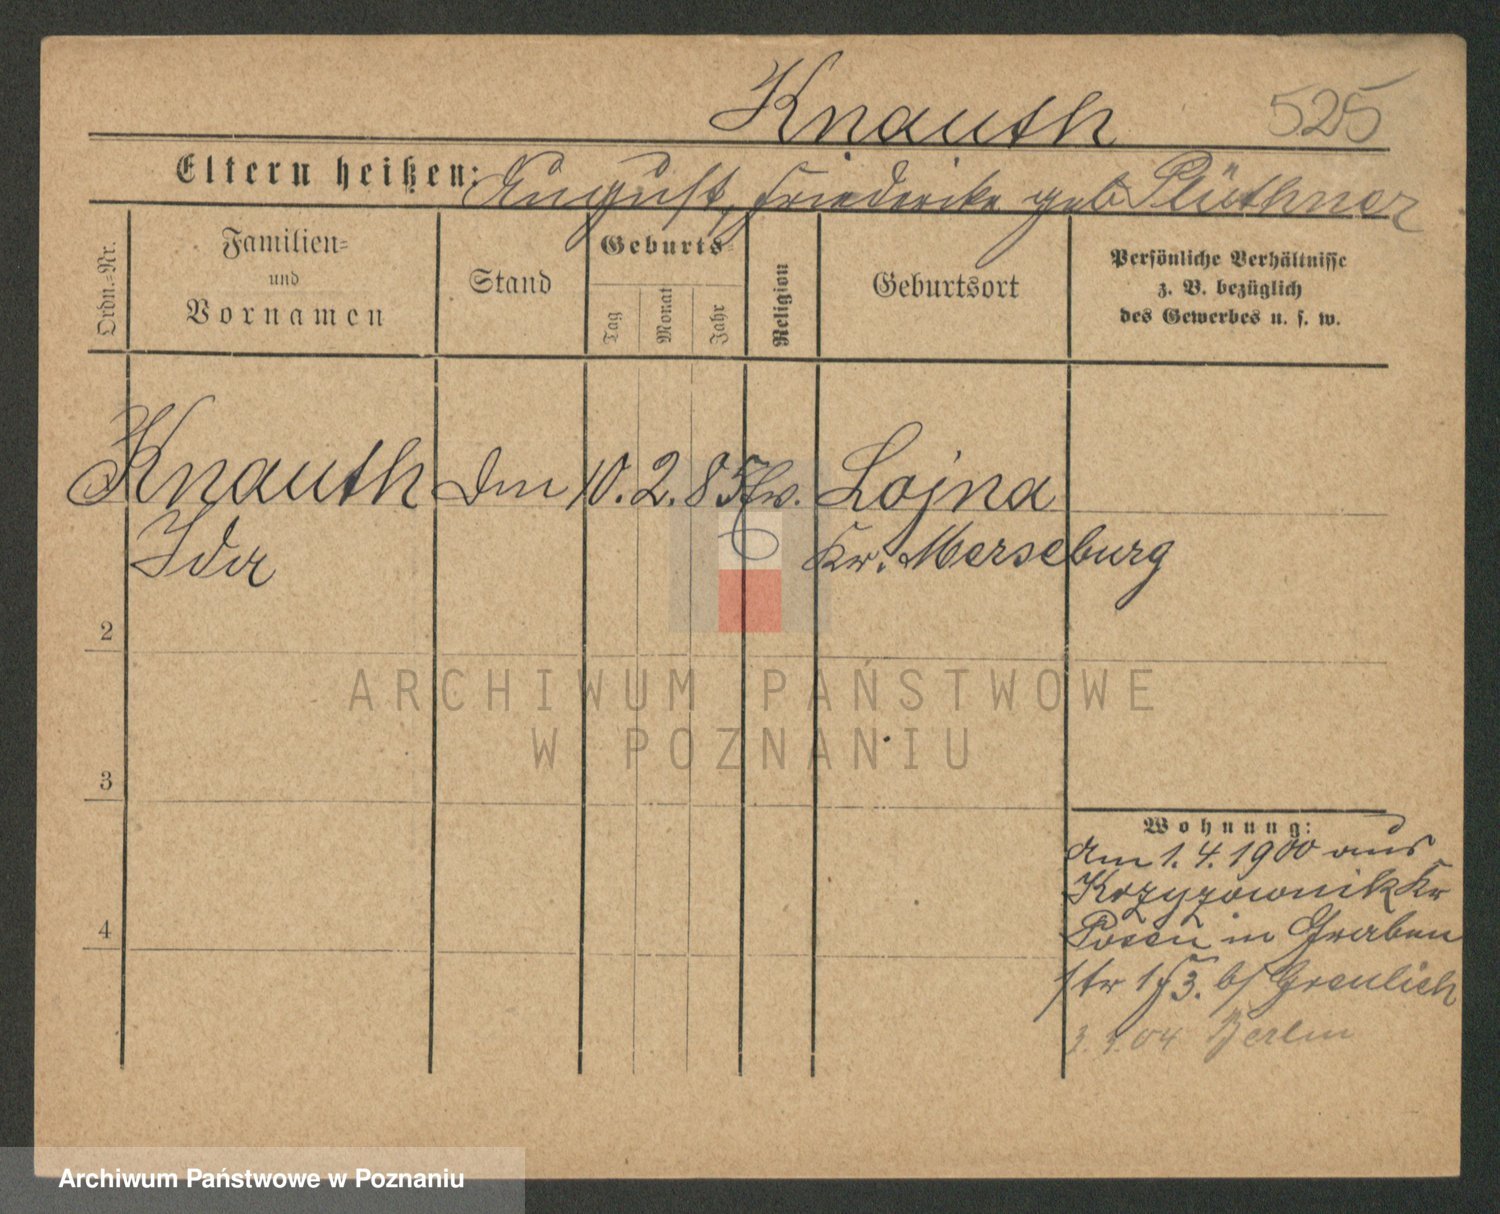 Knauth 525
Eltern heißen: August, Friederike geb Plüthner
Ordn.=Nr.
Familien=
und
Vornamen
Stand
Geburts=
Tag
Monat
Jahr
Religion
Geburtsort
Persönliche Verhältnisse
z. B. bezüglich
des Gewerbes u. s. w.
Knauth 10. 2. 85 Lojna
Ida Kr. Merseburg
2
3
4
ARCHIWUM PAŃSTWOWE
W POZNANIU
Wohnung:
Am 1. 4. 1900 aus
Krzyzownik Kr
Posen in Graben
str b/ Greulich
04 Berlin
Archiwum Państwowe w Poznaniu